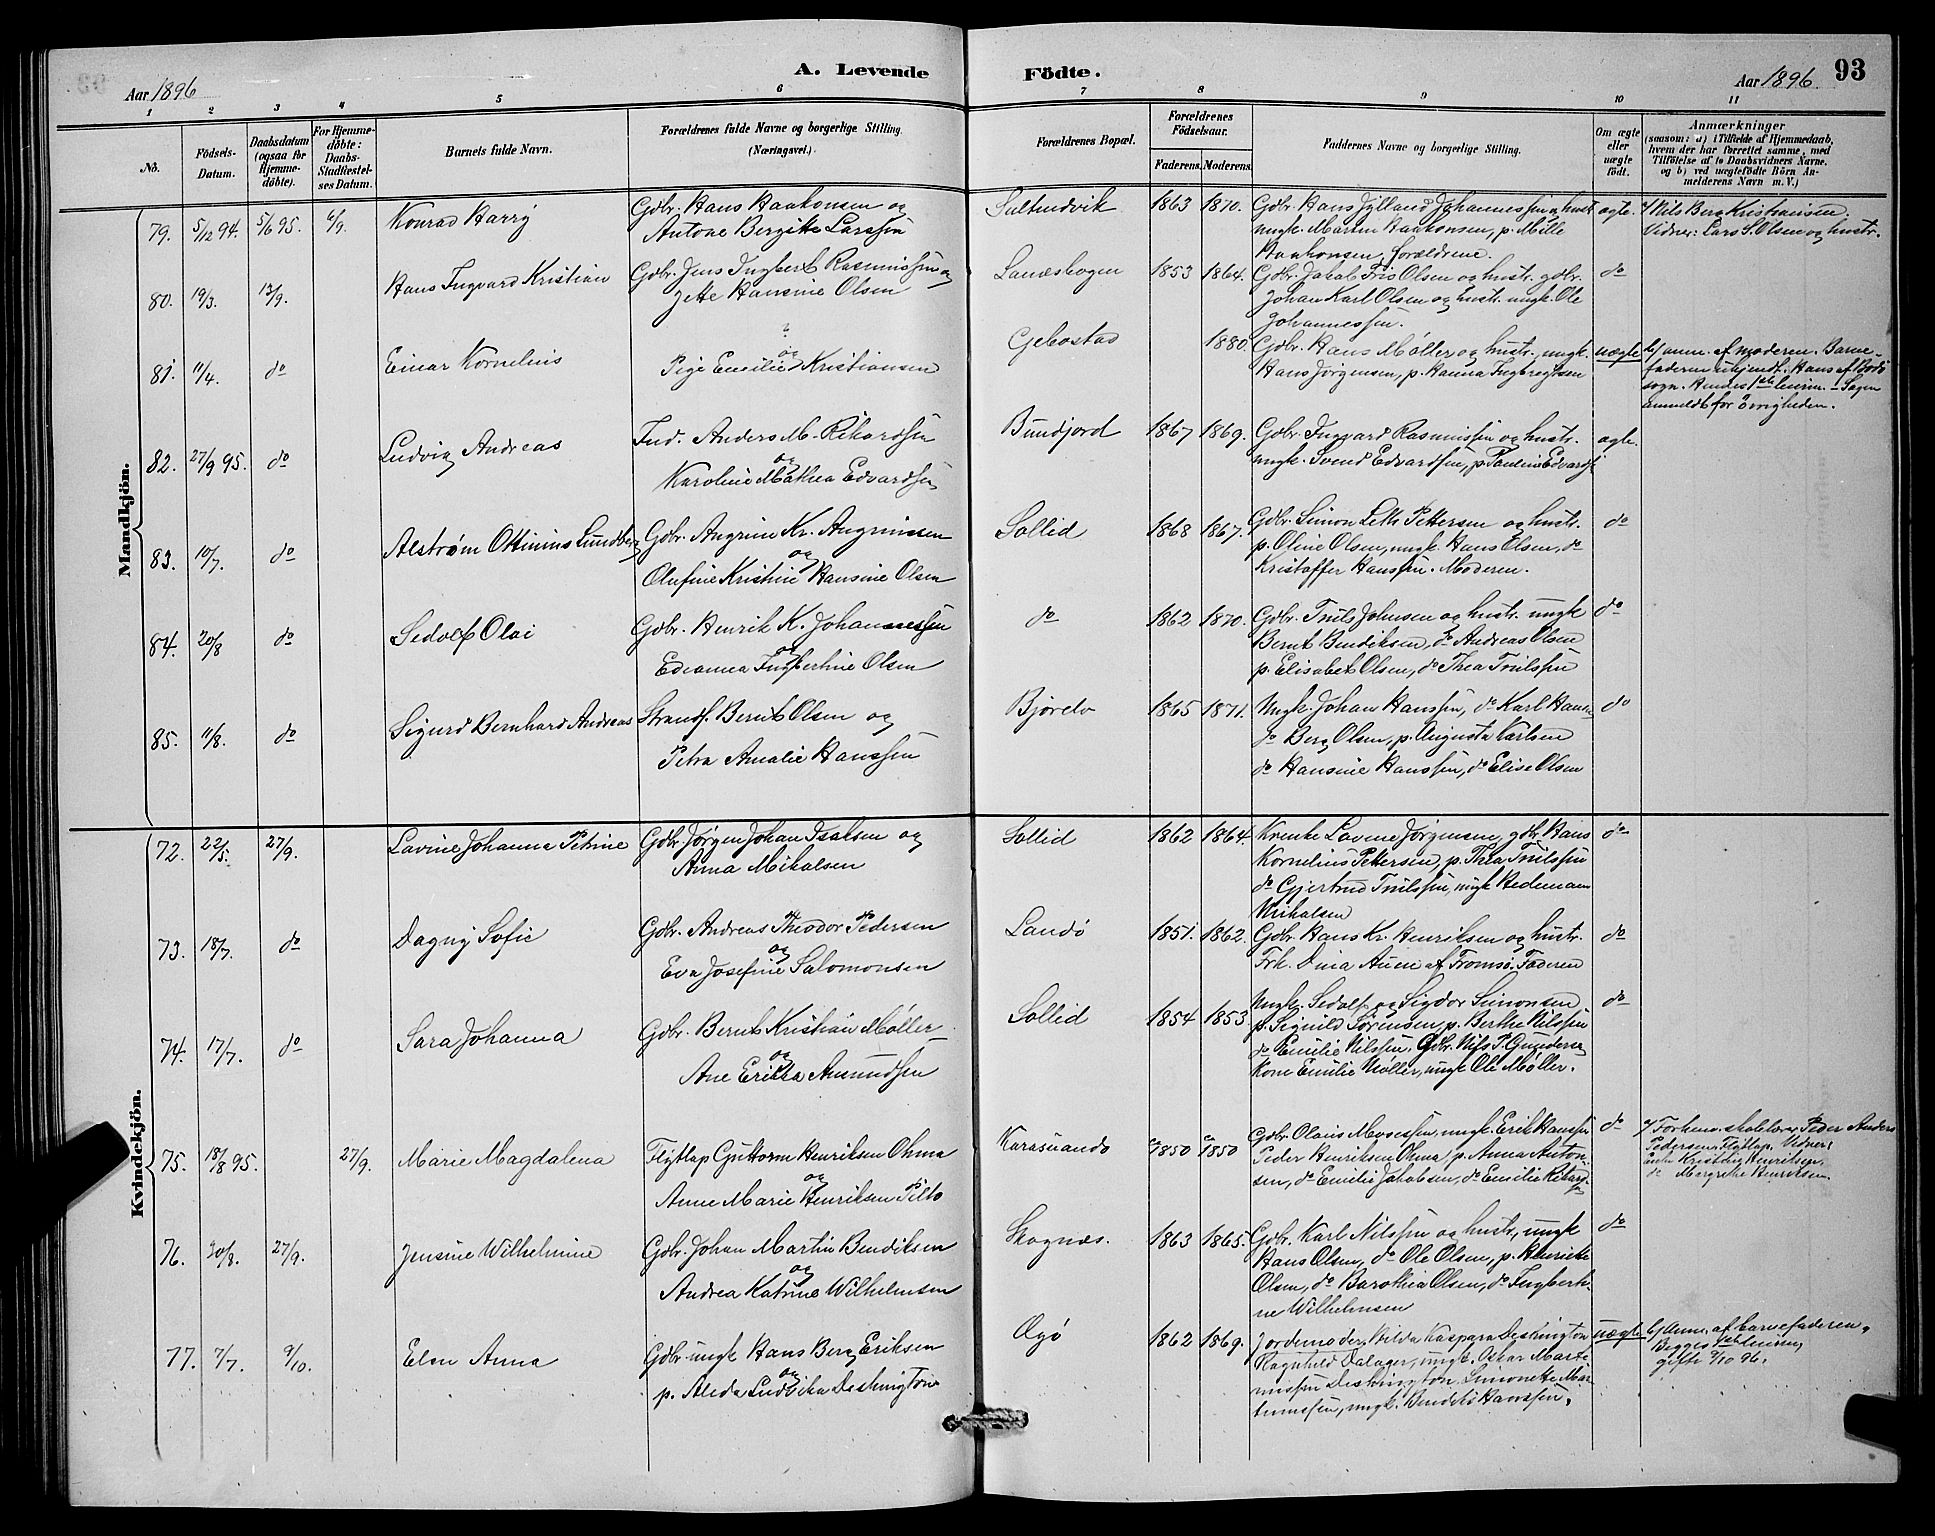 Aar 1896
A. Levende Födte.
Aar 1896. 93
1 2 3 4 5 6 7 8 9 10 11
No.
Födsels-Datum.
Daabsdatum (ogsaa for Hjemme-döbte).
For Hjemme-döbte: Daabs-Stadfæstel-ses Datum.
Barnets fulde Navn.
Forældrenes fulde Navne og borgerlige Stilling. (Næringsvei.)
Forældrenes Bopæl.
Forældrenes Födselsaar.
Faderens. Moderens.
Faddernes Navne og borgerlige Stilling.
Om ægte eller uægte födt.
Anmærkninger
(saasom: a) i Tilfælde af Hjemmedaab, hvem der har forrettet samme, med Tilföielse af to Daabsvidners Navne. og b) ved uægtefödte Börn An-melderens Navn m. V.)
Mandkjön.
79. 5/12 94. 5/6 95. 6/9. Konrad Harry
Gdbr. Hans Haakonsen og
Antone Bergitte Larssen
1863 1870.
Gdbr. Hans Jylland Johannessen og hustr.
ungk. Martin Haakonsen, p. Milli
Haakonsen, forældrene.
ægte.
a/ Nils Berg Kristiansen.
Vidner: Lars S. Olsen og hustr.
80. 19/3. 13/9. Hans Ingvard Kristian
Gdbr. Jens Ingbert Rasmussen og
Jette Hansine Olsen
1853 1864.
Gdbr. Jakob Friis Olsen og hustr. gdbr.
Johan Karl Olsen og hustr. ungk. Ole
Johannessen.
do
81. 11/4. do Einar Kornelius
?
og
Pige Emilie Kristiansen
Gebostad 1880.
Gdbr. Hans Møller og hustr. ungk.
Hans Jørgensen, p. Hanna Ingbregtsen
uægte
b/ anm. af moderen. Barne-
faderen ukjendt. Hans af Bodö
sogn. Hendes 1ste leierm. Sagen
anmeldt for övrigheden.
82. 27/9 95. do Ludvig Andreas
Ind. Anders M. Rikardsen
og
Karoline Mathea Edvardsen
Bundjord 1867 1869.
Gdbr. Ingvard Rasmussen og hustr.
ungk. Svend Edvardsen, p. Pauline Edvards
ægte.
83. 10/7. do Alstrøm Ottinius Lundberg
Gdbr. Angrim Kr. Angrimsen
og
Olufine Kristine Hansine Olsen
Sollid 1868 1867.
Gdbr. Simon Leth Pettersen og hustr.
p. Oline Olsen, ungk. Hans Olsen, do
Kristoffer Hanssen. Moderen.
do
84. 20/8 do Sedolf Olai
Gdbr. Henrik K. Johannessen
og
Edianna Ingbertine Olsen
do 1862 1870.
Gdbr. Truls Johnsen og hustr. ungk
Bernt Bendiksen, do Andreas Olsen
p. Elisabet Olsen, do Thea Trulssen
do
85. 11/8. do Sigurd Bernhard Andreas
Strands. Bernt Olsen og
Petra Amalie Hanssen
1865 1871.
Ungk. Johan Hanssen, do Karl Hans-
do Berg Olsen, p. Augusta Karlsen
do Hansine Hanssen, do Elise Olsen
do
Kvindekjön.
72. 22/5. 27/9. Lavine Johanna Petrine
Gdbr. Jørgen Johan Isaksen og
Anna Mikalsen
Sollid 1862 1864.
Lavine Jörgensen, gdbr. Hans
Kornelius Pettersen, p. Thea Trulssen
do Gjertrud Trulssen, ungk Hedemann
Mikalsen
do
73. 18/7. do Dagny Sofie
Gdbr. Andreas Theodor Pedersen
og
Eva Josefine Salomonsen
Landö 1851. 1862.
Gdbr. Hans Kr. Henriksen og hustr.
Frk. Dina Aune af Tromsö. Faderen
do
74. 17/7. do Sara Johanna
Gdbr. Bernt Kristian Møller
og
Ane Erikka Amundsen
Sollid 1854 1853
Ungk. Sedolf og Sigdor Simonsen
p. Signild Sørensen, p. Berthe Nilssen
do Emilie Nilssen, Gdbr. Nils P. Gundersen
Kone Emilie Møller, ungk Ole Møller.
do
75. 18/8 95. 27/9. Marie Magdalena
Flytlap Guttorm Henriksen Omma
og
Anne Marie Henriksen Pilto
Karasuando ca 1850 ca 1850
Gdbr. Olaus Mosessen, ungk. Erik Hanssen
Peder Henriksen Omma, p. Anna Anton-
sen, do Emilie Jakobsen, do Emilie Rikard-
sen
do
a/ Forhenv. skolelærer Peder Anders
Pedersen, Flytlap. Vidner:
Kristine Henriksen,
do Margrethe Henriksen.
76. 30/8. 27/9. Jensine Wilhelmine
Gdbr. Johan Martin Bendiksen
og
Andrea Katrine Wilhelmsen
Skognæs. 1863 1865.
Gdbr. Karl Nilssen og hustr., ungk
Hans Olsen, do Ole Olsen, p. Henriette
Olsen, do Barothea Olsen, do Ingberti-
ne Wilhelmsen
do
77. 7/7. 9/10. Elen Anna
Gdbr. ungk Hans Berg Eriksen
og
p. Alida Ludvika Deskington
1862 1869.
Jordemoder Hilda Kaspara Deskington
Ragnhild Dalager, ungk. Oskar Marti-
nussen Deskington, Simonette Mar-
tinussen, ungk. Bendikt Hanssen.
uægte
b/ Anm. af barnefaderen.
Begges 1ste leierm,
gifte 9/10 96.